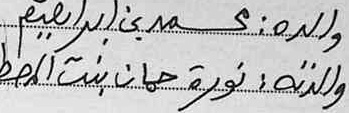 والده: محمد بن ابراهيم
والدته: نورة حمان بنت المصط